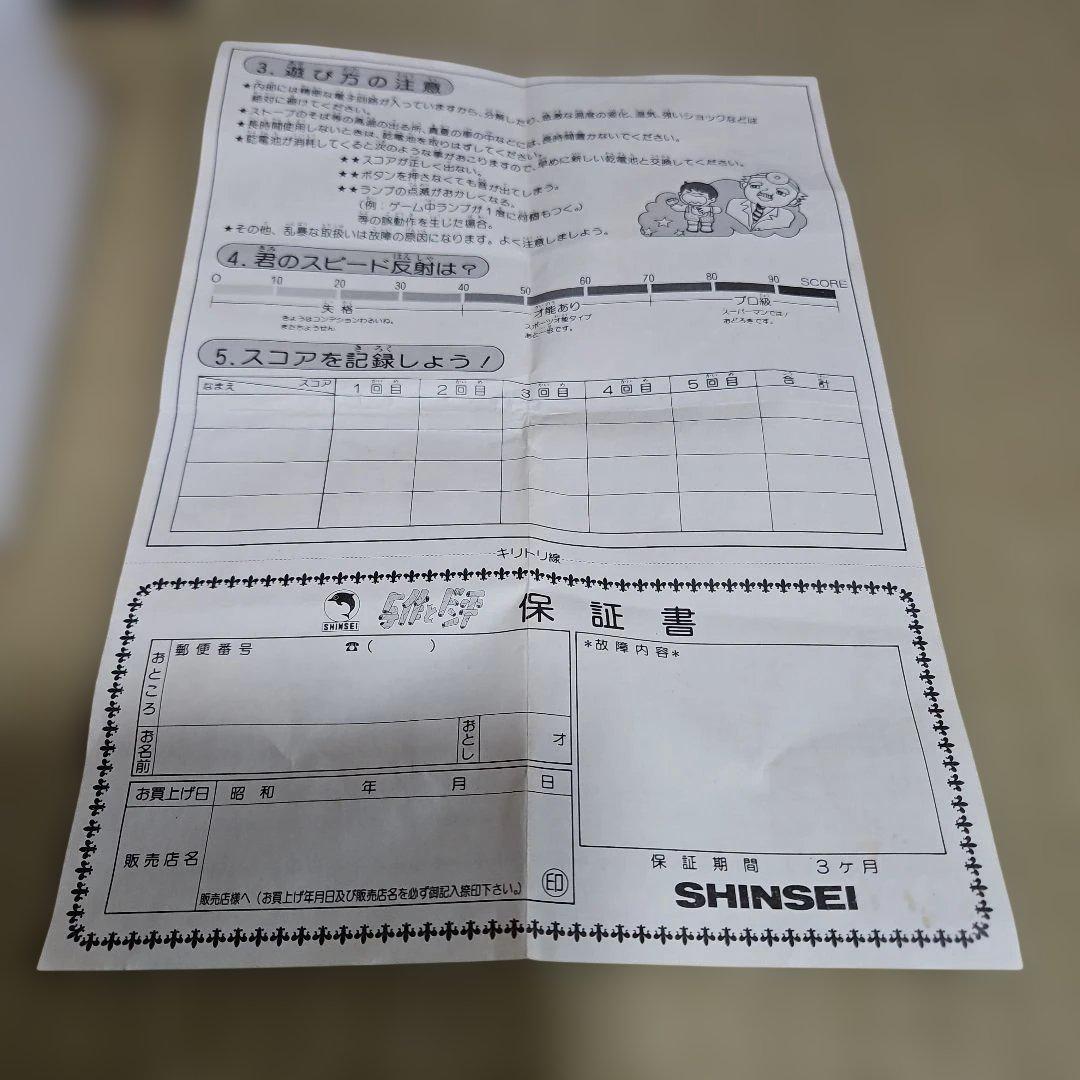 3. 遊び方の注意
★内部には精密な電子回路が入っていますから、分解したり、急激な温度の変化、湿気、強いショックなどは
絶対に避けてください。
★ストーブのそば等の高温の出る所、真夏の車の中などには、長時間置かないでください。
★長時間使用しないときは、乾電池を取りはずしてください。
★乾電池が消耗してくると次のような事がおこりますので、早めに新しい乾電池と交換してください。
★★スコアが正しく出ない。
★★ボタンを押さなくても音が出てしまう。
★★ランプの点滅がおかしくなる。
(例:ゲーム中ランプが1度に何個もつく。)
等の誤動作を生じた場合。
★その他、乱暴な取扱いは故障の原因になります。よく注意しましょう。
4. 君のスピード反射は?
0 10 20 30 40 50 60 70 80 90 SCORE
失格 才能あり プロ級
きょうはコンデションわるいね。 スポーツ才能タイプ スーパーマンでは!
まだちょうせん あと一歩です。 おどろきです。
5. スコアを記録しよう!
なまえ スコア 1回目 2回目 3回目 4回目 5回目 合計
キリトリ線
SHINSEI 与作とドンベエ 保証書
郵便番号 ☎( ) *故障内容*
おところ
お名前 おとし 才
お買上げ日 昭和 年 月 日
販売店名
販売店様へ(お買上げ年月日及び販売店名を必ず御記入捺印下さい。) 印
保証期間 3ヶ月
SHINSEI